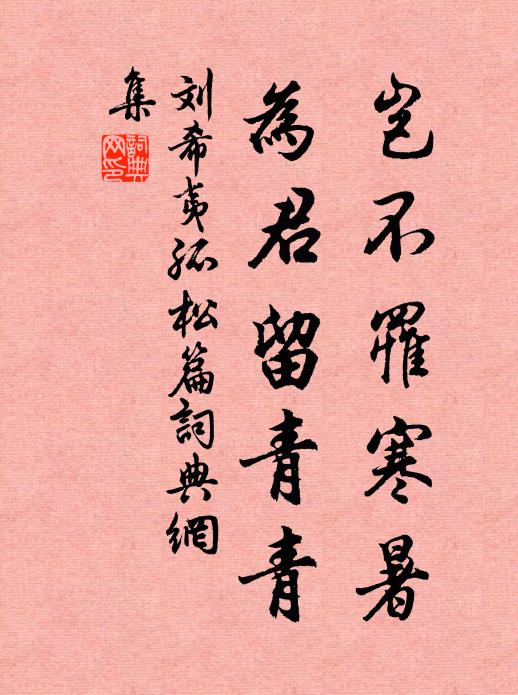 岂不罹寒暑
為君留青青
刘希夷孤松篇詞典網
集
詞典
网印